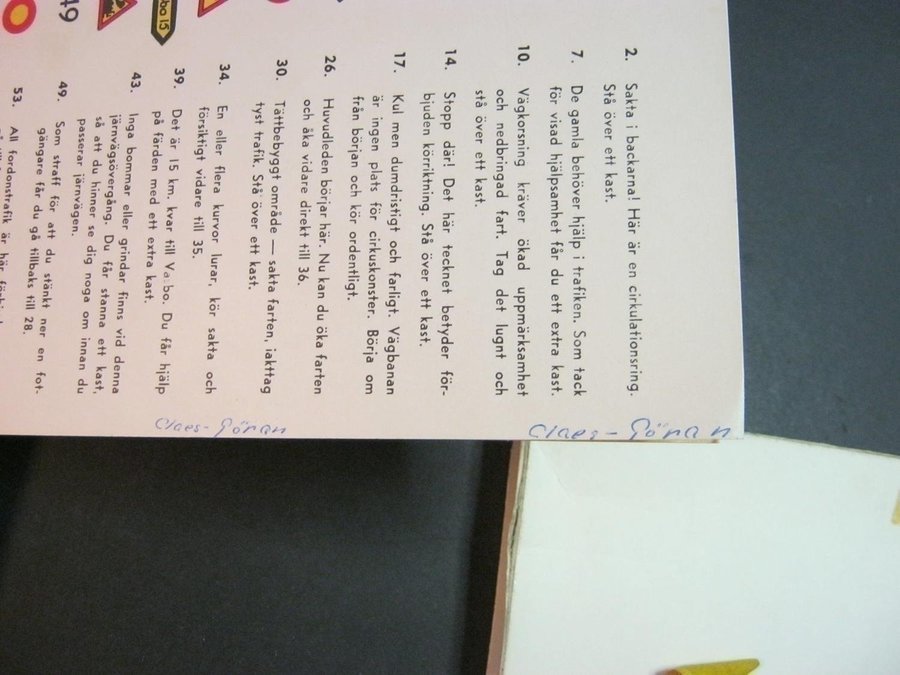 2. Sakta i backarna! Här är en cirkulationsring.
Stå över ett kast.
7. De gamla behöver hjälp i trafiken. Som tack
för visad hjälpsamhet får du ett extra kast.
10. Vägkorsning kräver ökad uppmärksamhet
och nedbringad fart. Tag det lugnt och
stå över ett kast.
14. Stopp där! Det här tecknet betyder för-
bjuden körriktning. Stå över ett kast.
17. Kul men dumdristigt och farligt. Vägbanan
är ingen plats för cirkuskonster. Börja om
från början och kör ordentligt.
26. Huvudleden börjar här. Nu kan du öka farten
och åka vidare direkt till 36.
30. Tättbebyggt område — sakta farten, iakttag
tyst trafik. Stå över ett kast.
34. En eller flera kurvor lurar, kör sakta och
försiktigt vidare till 35.
39. Det är 15 km. kvar till bo. Du får hjälp
på färden med ett extra kast.
43. Inga bommar eller grindar finns vid denna
järnvägsövergång. Du får stanna ett kast,
så att du hinner se dig noga om innan du
passerar järnvägen.
49. Som straff för att du stänkt ner en fot-
gängare får du gå tillbaks till 28.
53. All fordonstrafik är här
Claes-Göran
Claes-Göran
49
bo 15